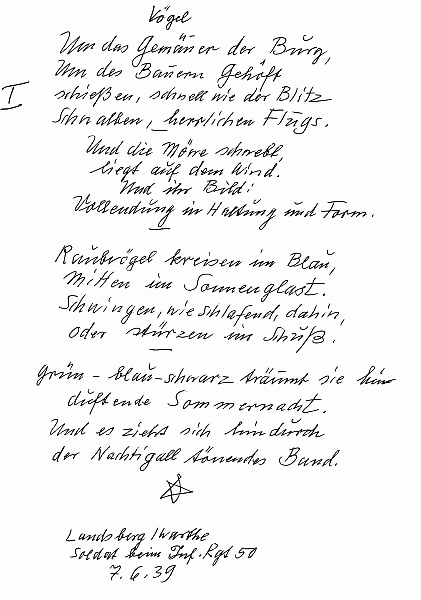 Vögel
Um das Gemäuer der Burg,
Um des Bauern Gehöft
I
schießen, schnell wie der Blitz
Schwalben, herrlichen Flugs.
Und die Möwe schwebt,
liegt auf dem Wind.
Und ihr Bild:
Vollendung in Haltung und Form.
Raubvögel kreisen im Blau,
Mitten im Sonnenglast.
Schwingen, wie schlafend, dahin,
oder stürzen im Schuß.
Grün - blau-schwarz träumt sie hin
duftende Sommernacht.
Und es zieht sich hindurch
der Nachtigall tönendes Band.
Landsberg/Warthe
Soldat beim Inf. Rgt 50
7.6.39